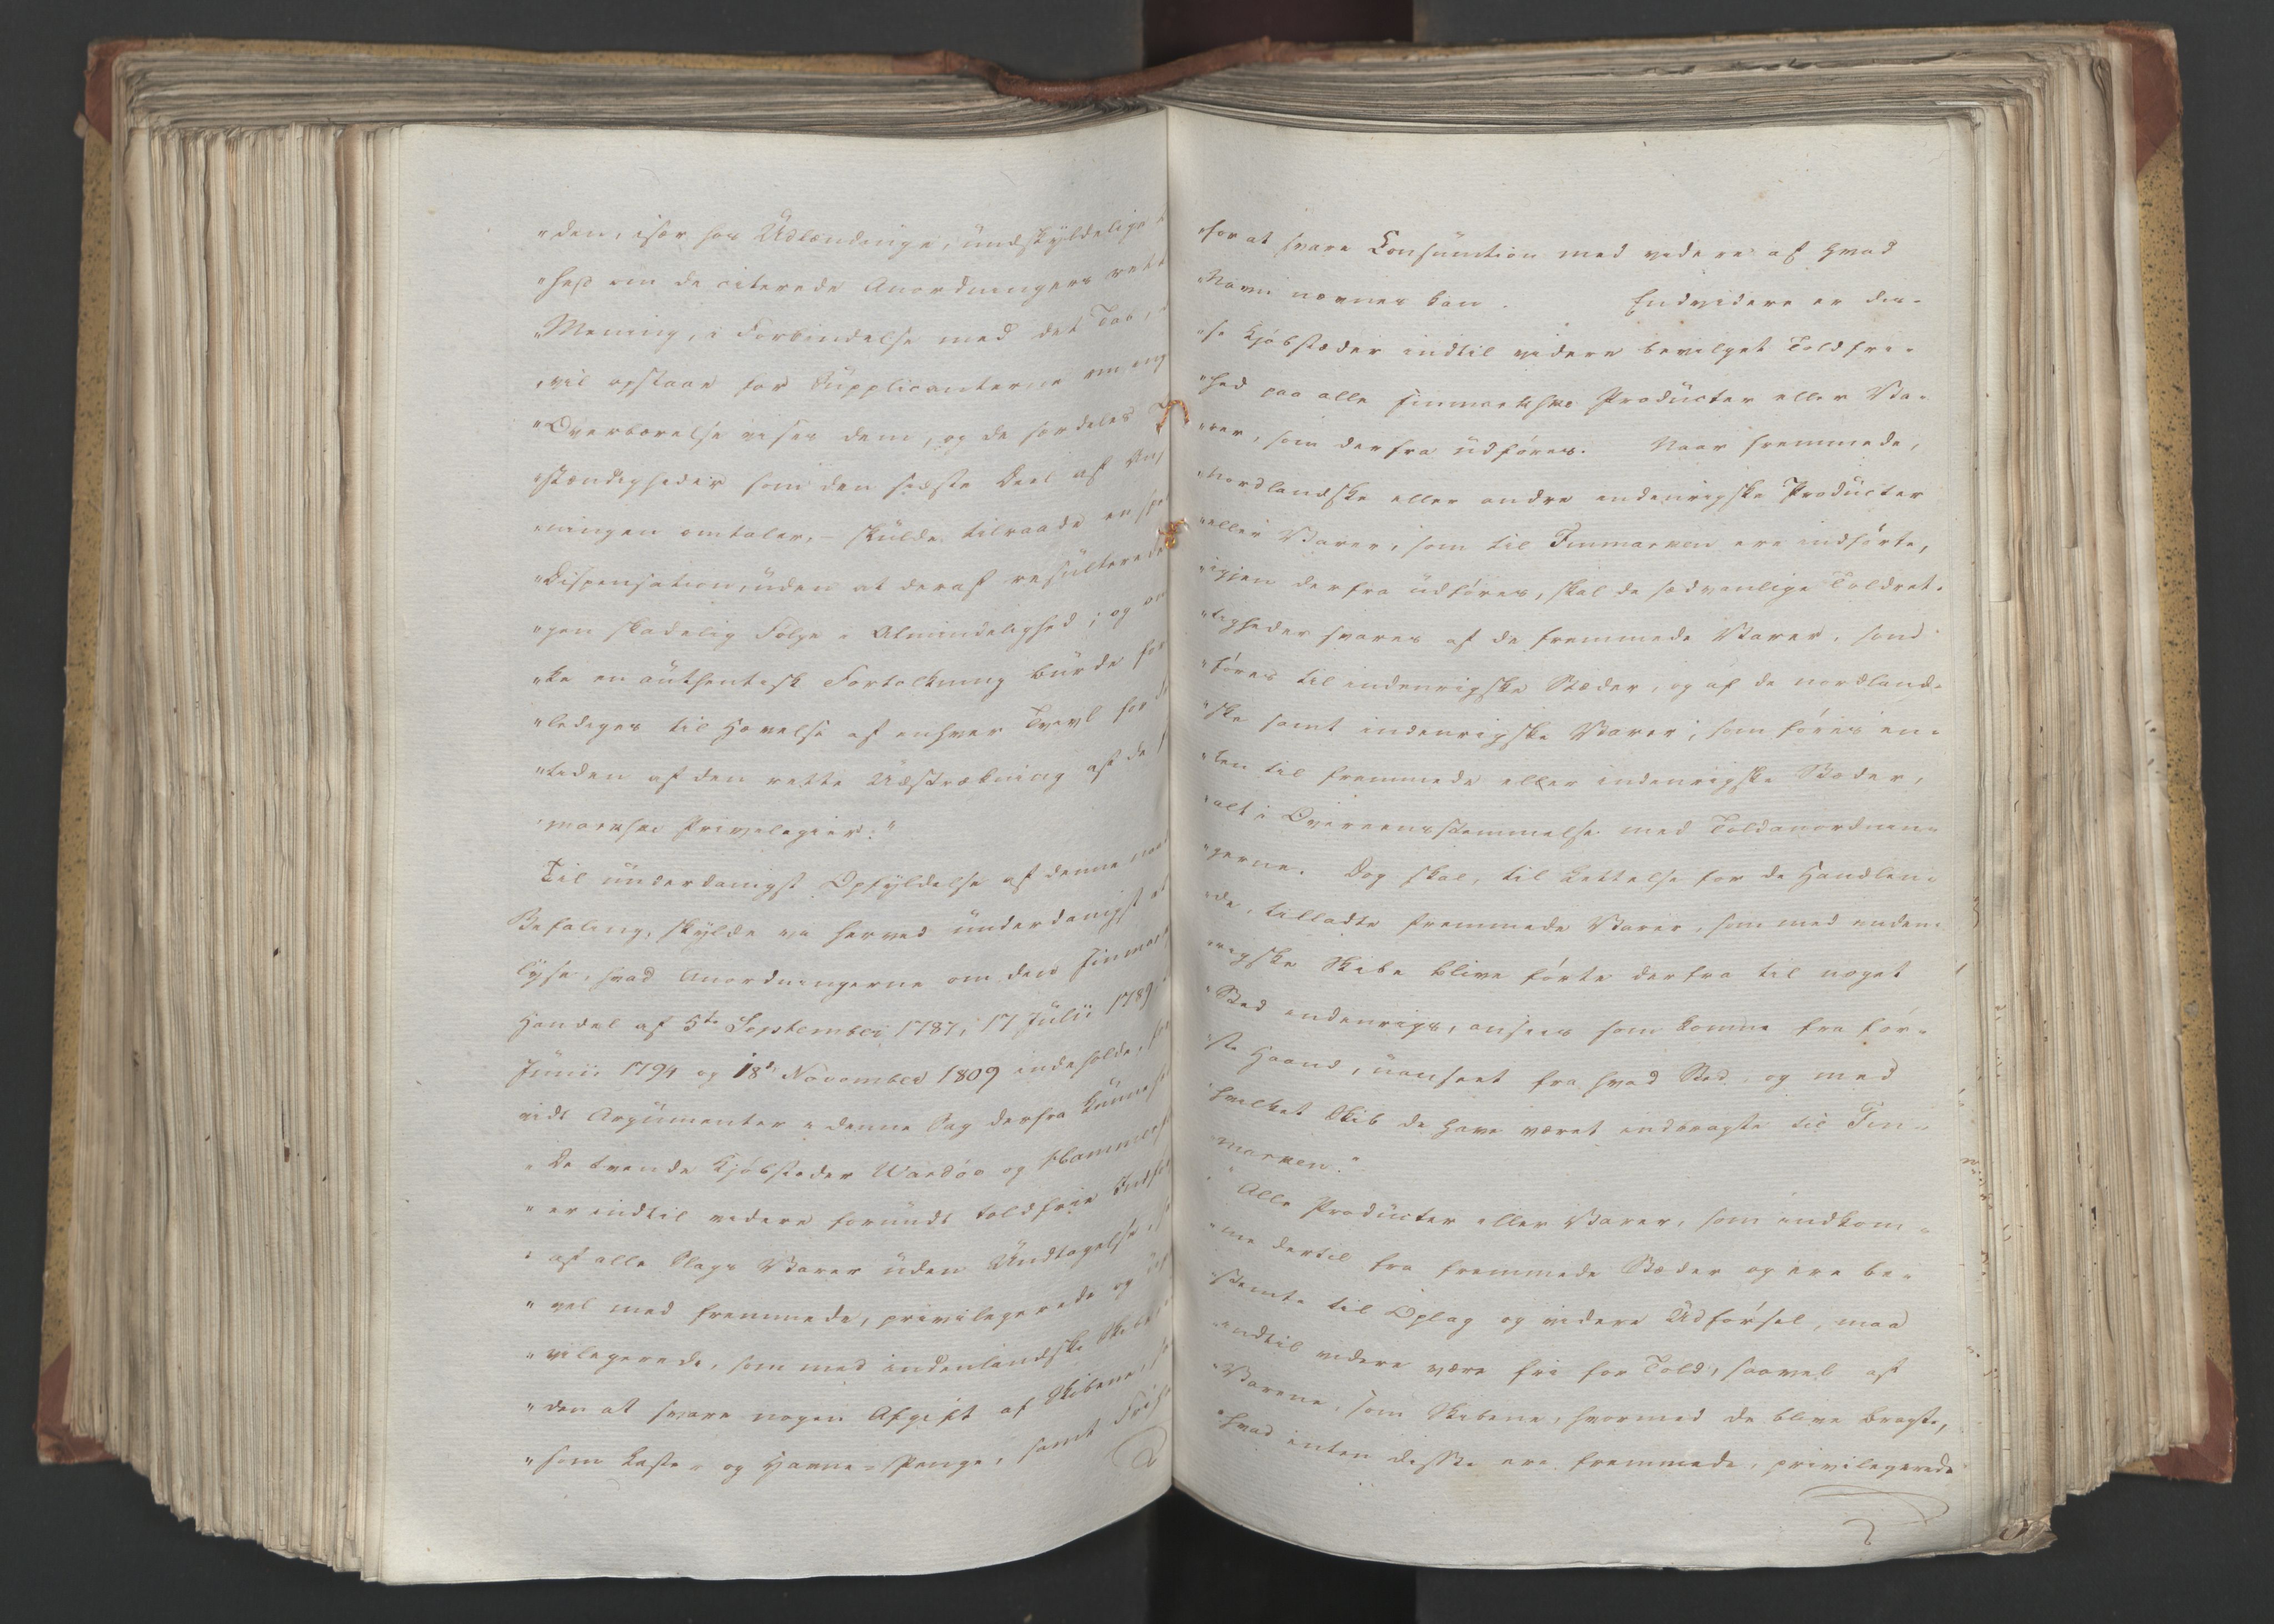 "den, især hos Udlændinge, undskyldelige
"hed om de citerede Anordningers rett
"Mening, i Forbindelse med det Tab,
"vil opstaae for Supplicanterne om ing
"Overbærelse vises dem, og de særdeles
"stændigheder som den sidste Deel af
"ningen omtaler, – skulde tilraade en spe
"Dispensation, uden at deraf resulterede
"gen skadelig Følge i Almindelighed; og om
"ke en authentisk Fortolkning burde for
"lediges til Hævelse af enhver Tvivl for
"tiden af den rette Udstrækning af de
"markske Privilegier."
Til underdanigst Opfyldelse af denne naa
Befaling, skylde vi herved underdanigst at
lyse, hvad Anordningerne om den Finmark
Handel af 5te September 1787, 17 Julii 1789
Junii 1794 og 18de November 1809 indeholde, for
vidt Argumenter i denne Sag derfra kunne
"De tvende Kjøbstæder Wardøe og Hammerf
"er indtil videre forundt toldfrie Indfø
"af alle Slags Varer uden Undtagelse,
"vel med fremmede, privilegerede og
"vilegerede, som med indenlandske Skibe
"den at svare nogen Afgift af Skibene
"som Laste- og Havne-Penge, samt Fri
"for at svare Consumtion med videre af hvad
"Navn nævnes kan. Endvidere er dis-
"se Kjøbstæder indtil videre bevilget Toldfri-
"hed paa alle finmarkske Producter eller Va-
"rer, som derfra udføres. Naar fremmede,
"nordlandske eller andre indenrigske Producter
"eller Varer, som til Finmarken ere indførte,
"igjen derfra udføres, skal de sædvanlige Toldret-
"tigheder svares af de fremmede Varer, som
"føres til indenrigske Stæder, og af de nordland-
"ske samt indenrigske Varer, som føres en-
"ten til fremmede eller indenrigske Stæder,
"alt i Overeensstemmelse med Toldanordnin-
"gerne. Dog skal, til Lettelse for de Handlen-
"de, tilladte fremmede Varer, som med inden-
"rigske Skibe blive førte derfra til noget
"Sted indenrigs, ansees som komne fra før-
"ste Haand, uanseet fra hvad Sted, og med
"hvilket Skib de have været indbragte til Fin-
"marken."
"Alle Producter eller Varer, som indkom-
"me dertil fra fremmede Stæder og ere be-
"stemte til Oplag og videre Udførsel, maa
"indtil videre være fri for Told, saavel af
"Varene, som Skibene, hvormed de blive bragte,
"hvad enten disse ere fremmede, privilegerede